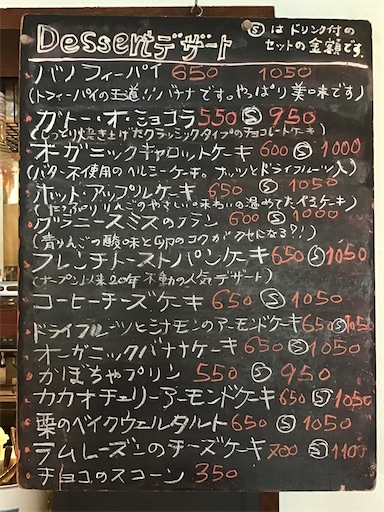 Dessert デザート
Ⓢは ドリンク付の
セットの金額です。
バノフィーパイ 650 1050
(トフィーパイの王道!!バナナです。やっぱり美味です)
ガトー・オ・ショコラ 550 Ⓢ 950
(しっとり焼き上げたクラシックタイプのチョコレートケーキ)
オーガニックキャロットケーキ 600 Ⓢ 1000
(バター不使用のヘルシーケーキ。ナッツとドライフルーツ入)
ホットアップルケーキ 650 Ⓢ 1050
りんごのやさしい味わいの温めて ケーキ)
グラニースミスのフラン 600 Ⓢ 1000
(青りんごの酸味と卵のコクがクセになる?!)
フレンチトーストパンケーキ 650 Ⓢ 1050
(オープン以来20年不動の人気デザート)
コーヒーチーズケーキ 650 Ⓢ 1050
ドライフルーツとシナモンのアーモンドケーキ 650 Ⓢ 1050
オーガニックバナナケーキ 650 Ⓢ 1050
かぼちゃプリン 550 Ⓢ 950
カカオチェリーアーモンドケーキ 650 Ⓢ 1050
栗のベイクウェルタルト 650 Ⓢ 1050
ラムレーズンのチーズケーキ 700 Ⓢ 1100
チョコのスコーン 350